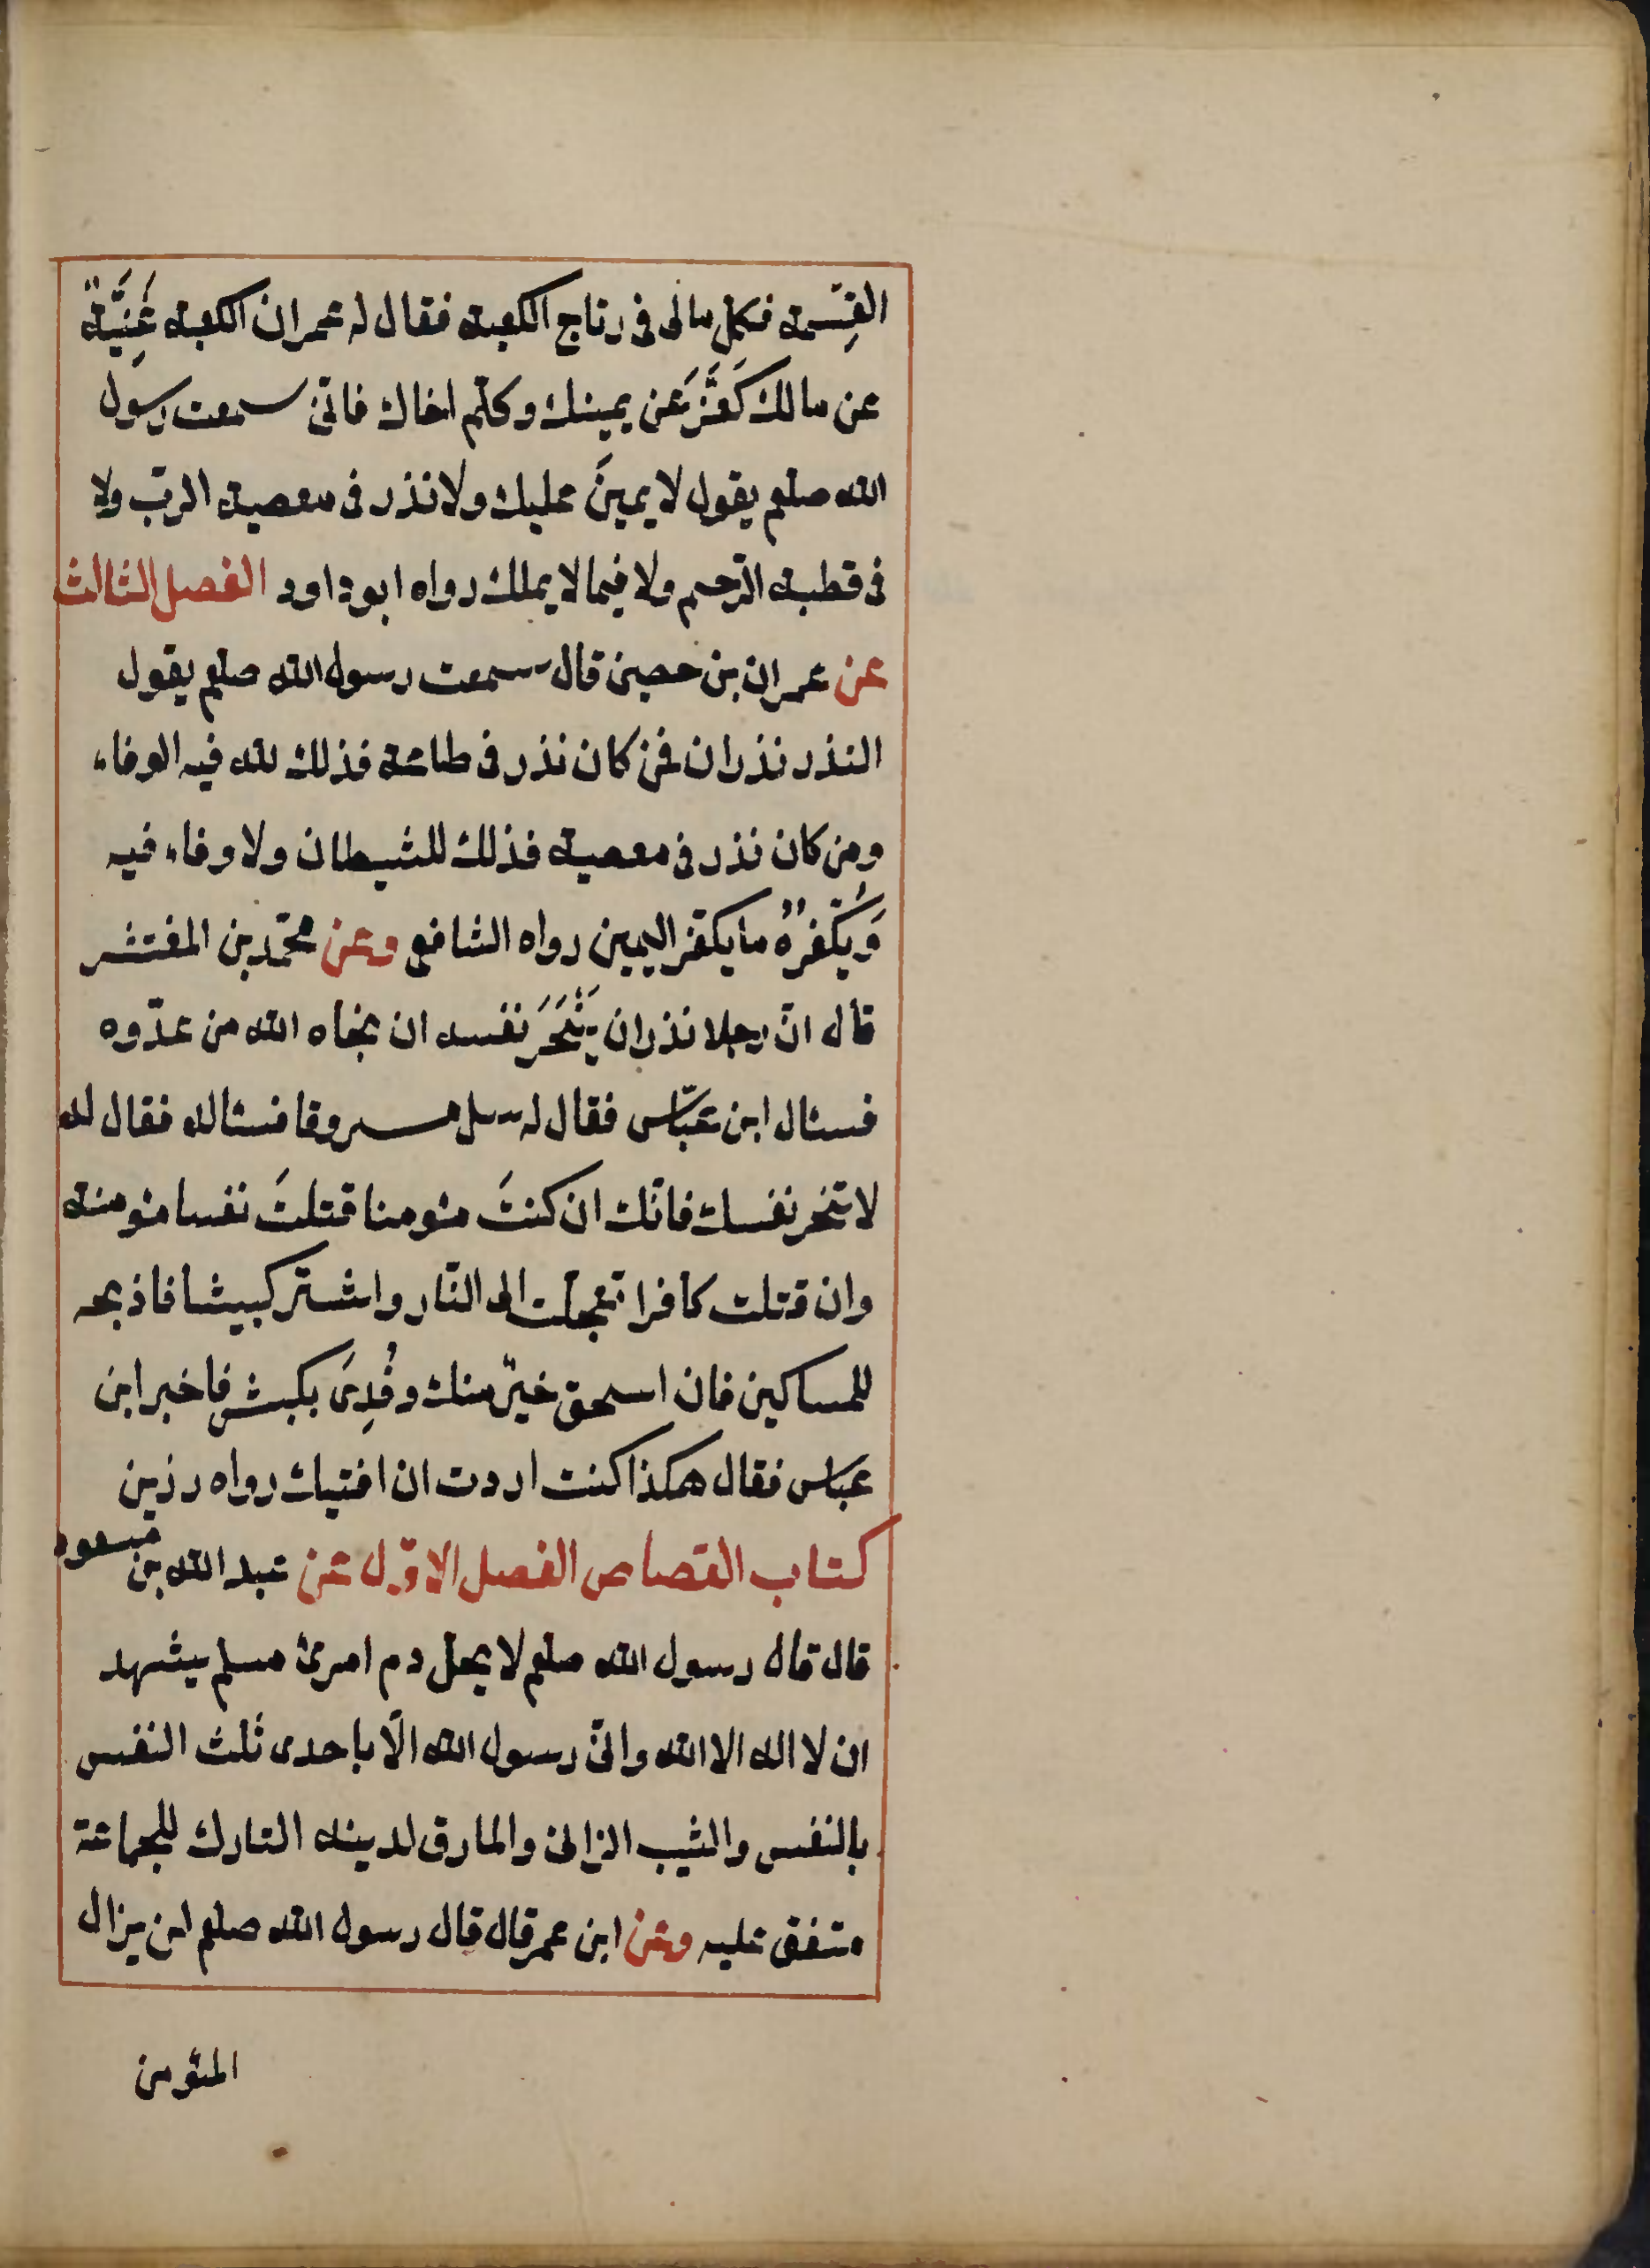 القِسْمة فكل مالى فى رتاج الكعبة فقال له عمر ان الكعبة غَنِيَّةٌ
عن مالك كَفِّرَ عَن يمينك وكلّم اخاك فانّى سمعت رسول
الله صلعم يقول لا يمينَ عليك ولا نذر فى معصية الربّ ولا
فى قطبة الرّحم ولا فيما لا يملك رواه ابو داود الفصل الثالث
عن عمران بن حصين قال سمعت رسول الله صلعم يقول
النذر نذران فمن كان نذر فى طاعة فذلك لله فيه الوفاء
ومن كان نذر فى معصية فذلك للشيطان ولا وفاء فيه
وَيُكَفِّرُهُ ما يكفّر اليمين رواه الشافعى وعن محمّد بن المفتشر
قال انّ رجلا نذر ان يَنْحَرَ نفسه ان نجاه الله من عدّوه
فسئال ابن عبّاس فقال له سل مسروقا فسئاله فقال له
لا تنحر نفسك فانّك ان كنتَ مئومنا قتلتَ نفسا مئومنة
وان قتلت كافرا تعجلت الى النّار واشتر كبيشا فاذبحه
للمساكين فان اسحق خيرٌ منك وفُدِىَ بكبش فاخبر ابن
عباس فقال هكذا كنت اردت ان افتيك رواه رزين
كتاب القصاص الفصل الاوّل عن عبد الله بن مسعود
قال قال رسول الله صلعم لا يحل دم امرئ مسلم يشهد
ان لا اله الا الله وانّى رسول الله الّا باحدى ثلث النفس
بالنفس والثيب الزانى والمارق لدينه التارك للجماعة
متفق عليه وعن ابن عمر قال قال رسول الله صلعم لن يزال
المئومن